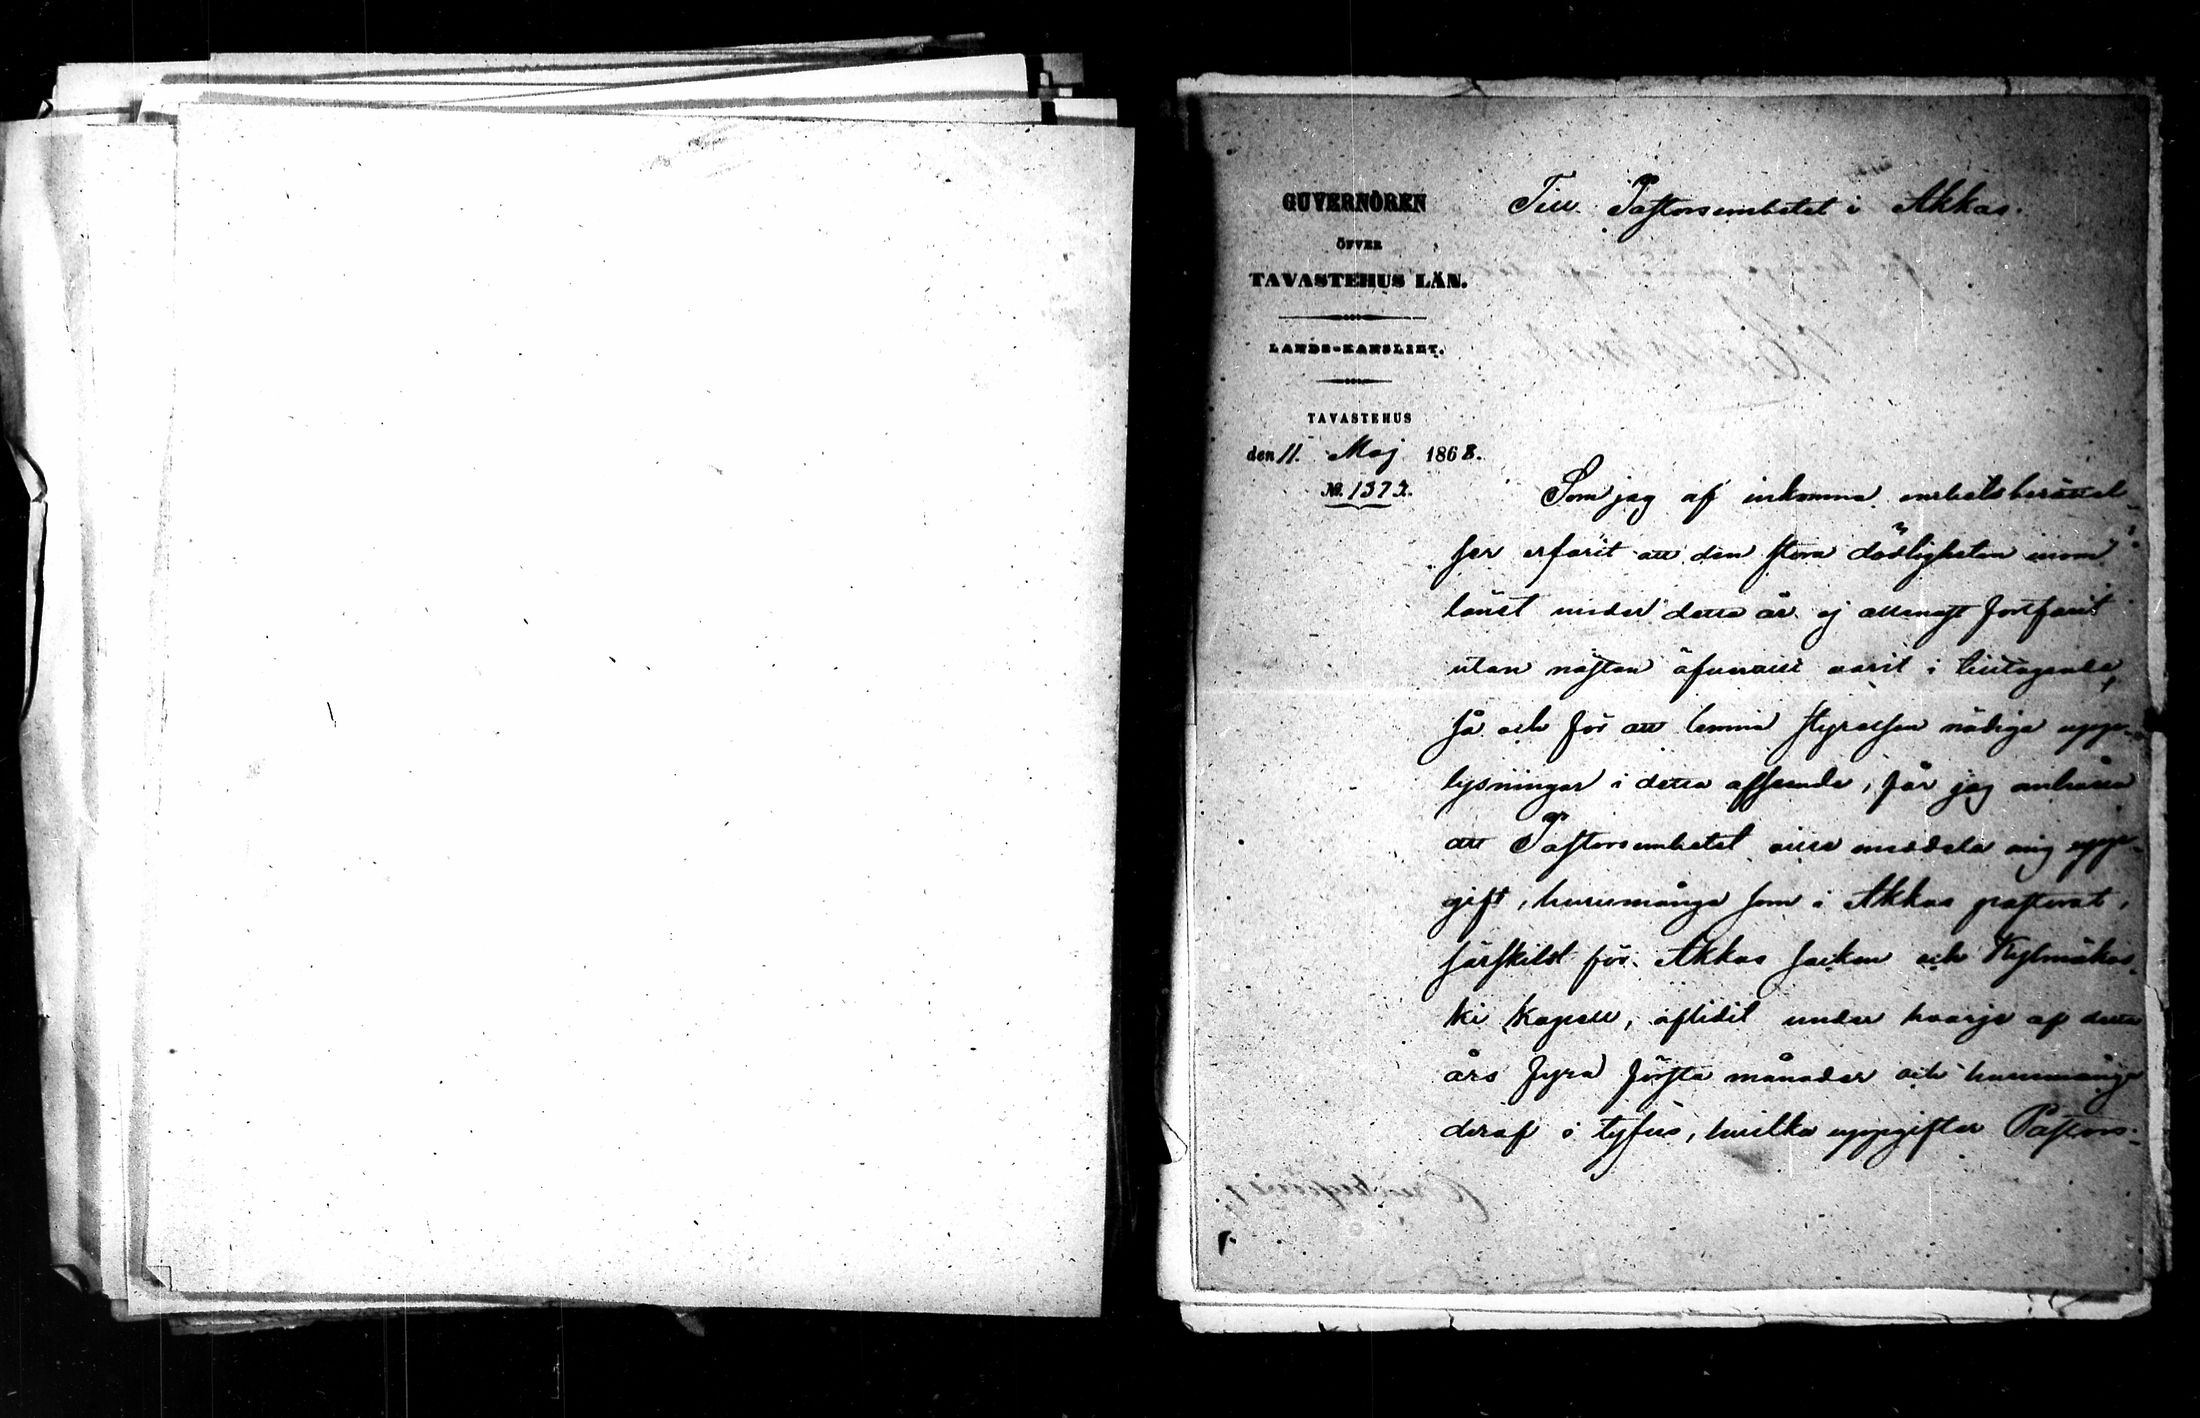 GUVERNÖREN
ÖFVER
TAVASTEHUS LÄN.
LANDS-KANSLIET.
TAVASTEHUS
den 11. Maj 1868.
No. 1373.
Till Pastorsembetet i Akkas.
Som jag af inkomna embetsberättel-
ser erfarit att den stora dödligheten inom
länet under detta år ej allenast fortfarit
utan nästan öfverallt varit i tilltagande,
så och för att lemna styrelsen nödiga upp-
lysningar i detta afseende, får jag anhålla
att Pastorsembetet ville meddela mig upp-
gift, hurumånga som i Akkas pastorat,
särskildt för Akkas socken och Kylmäkos-
ki Kapell, aflidit under hvarje af detta
års fyra första månader och hurumånga
deraf i tyfus, hvilka uppgifter Pastors-